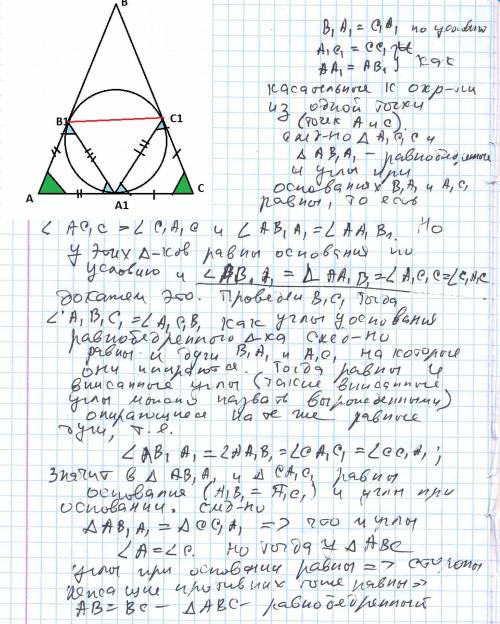 B
B1
C1
A
A1
C
B₁A₁ = C₁A₁ по условию
A₁C₁ = CC₁ и
AA₁ = AB₁ } как
касательные к окр-ти
из одной точки
(точек A и C)
след-но △ A₁C₁C и
△ AB₁A₁ – равнобедренные
и углы при
основаниях B₁A₁ и A₁C₁
равны, то есть
∠ A₁C₁C = ∠ C₁A₁C и ∠ AB₁A₁ = ∠AA₁B₁. Но
у этих △-ков равны основания по
условию и ∠AB₁A₁ = ∠ AA₁B₁ = ∠A₁C₁C = ∠C₁A₁C
докажем это. Проведём B₁C₁ тогда
∠ A₁B₁C₁ = ∠A₁C₁B₁ как углы у основания
равнобедренного △-ка след-но
равны и дуги B₁A₁ и A₁C₁ на которые
они опираются. Тогда равны и
вписанные углы (такие вписанные
углы можно назвать вырожденными)
опирающиеся на те же равные
дуги, т.е.
∠AB₁A₁ = ∠AA₁B₁ = ∠CA₁C₁ = ∠CC₁A₁;
Значит в △AB₁A₁ и △CA₁C₁ равны
основание (A₁B₁ = A₁C₁) и углы при
основании. след-но
△AB₁A₁ = △CC₁A₁ => что и углы
∠A = ∠C. Но тогда у △ABC
углы при основании равны => стороны
лежащие против них тоже равны =>
AB = BC – △ABC – равнобедренный